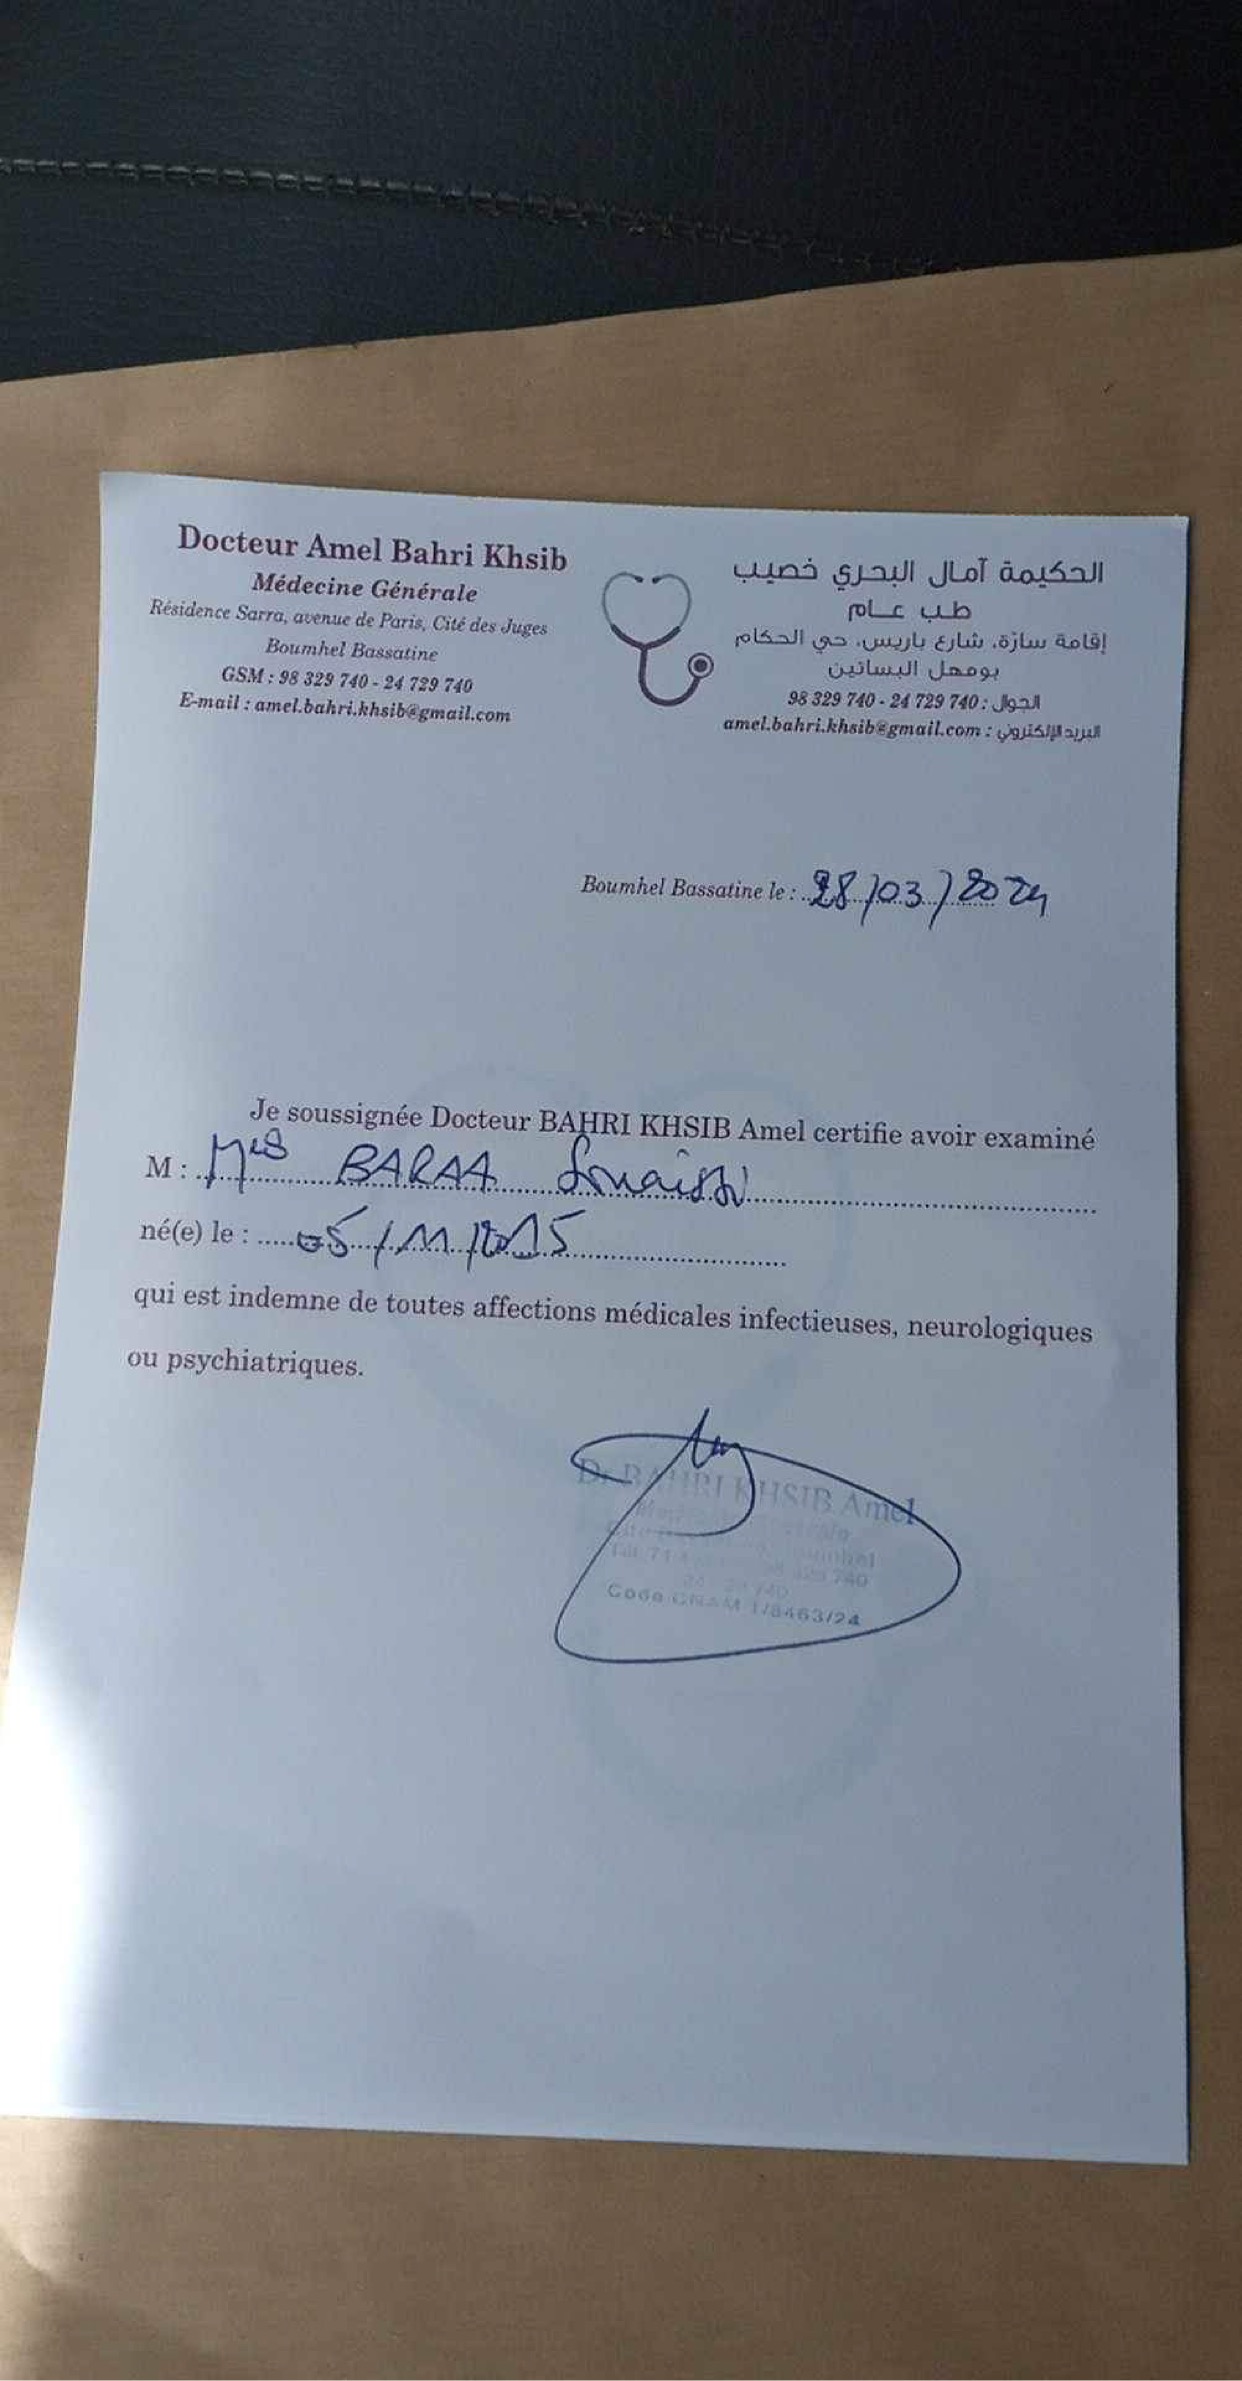 Docteur Amel Bahri Khsib
Médecine Générale
Résidence Sarra, avenue de Paris, Cité des Juges
Boumhel Bassatine
GSM : 98 329 740 - 24 729 740
E-mail : amel.bahri.khsib@gmail.com
الحكيمة آمال البحري خصيب
طب عام
إقامة سارة، شارع باريس، حي الحكام
بومهل البساتين
الجوال : 98 329 740 - 24 729 740
البريد الإلكتروني : amel.bahri.khsib@gmail.com
Boumhel Bassatine le : 28/03/2024
Je soussignée Docteur BAHRI KHSIB Amel certifie avoir examiné
M : BARAA
né(e) le : 05/11/2015
qui est indemne de toutes affections médicales infectieuses, neurologiques
ou psychiatriques.
Dr BAHRI KHSIB Amel
Code CNAM 1/8463/24